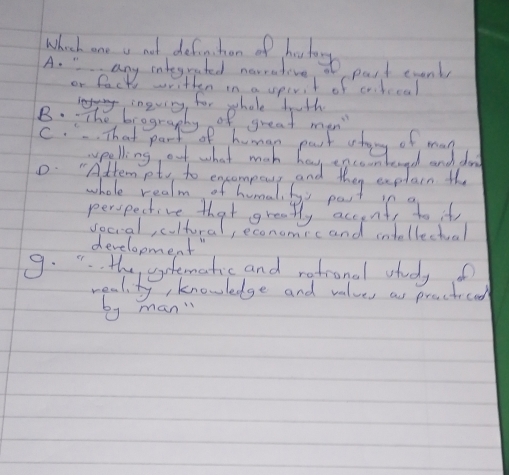 Which one is not definition of history
A. "... any integrated narrative of past events
or facts written in a spirit of critical
inquiry for whole truth
B. "The biography of great men"
C. "... That part of human past story of man
spelling out what man has encountered and done
D. "Attempts to encompass and then explain the
whole realm of humality's past in a
perspective that greatly accents to its
social, cultural, economic and intellectual
development"
g. "...the systematic and rational study of
reality, knowledge and values as practiced
by man"